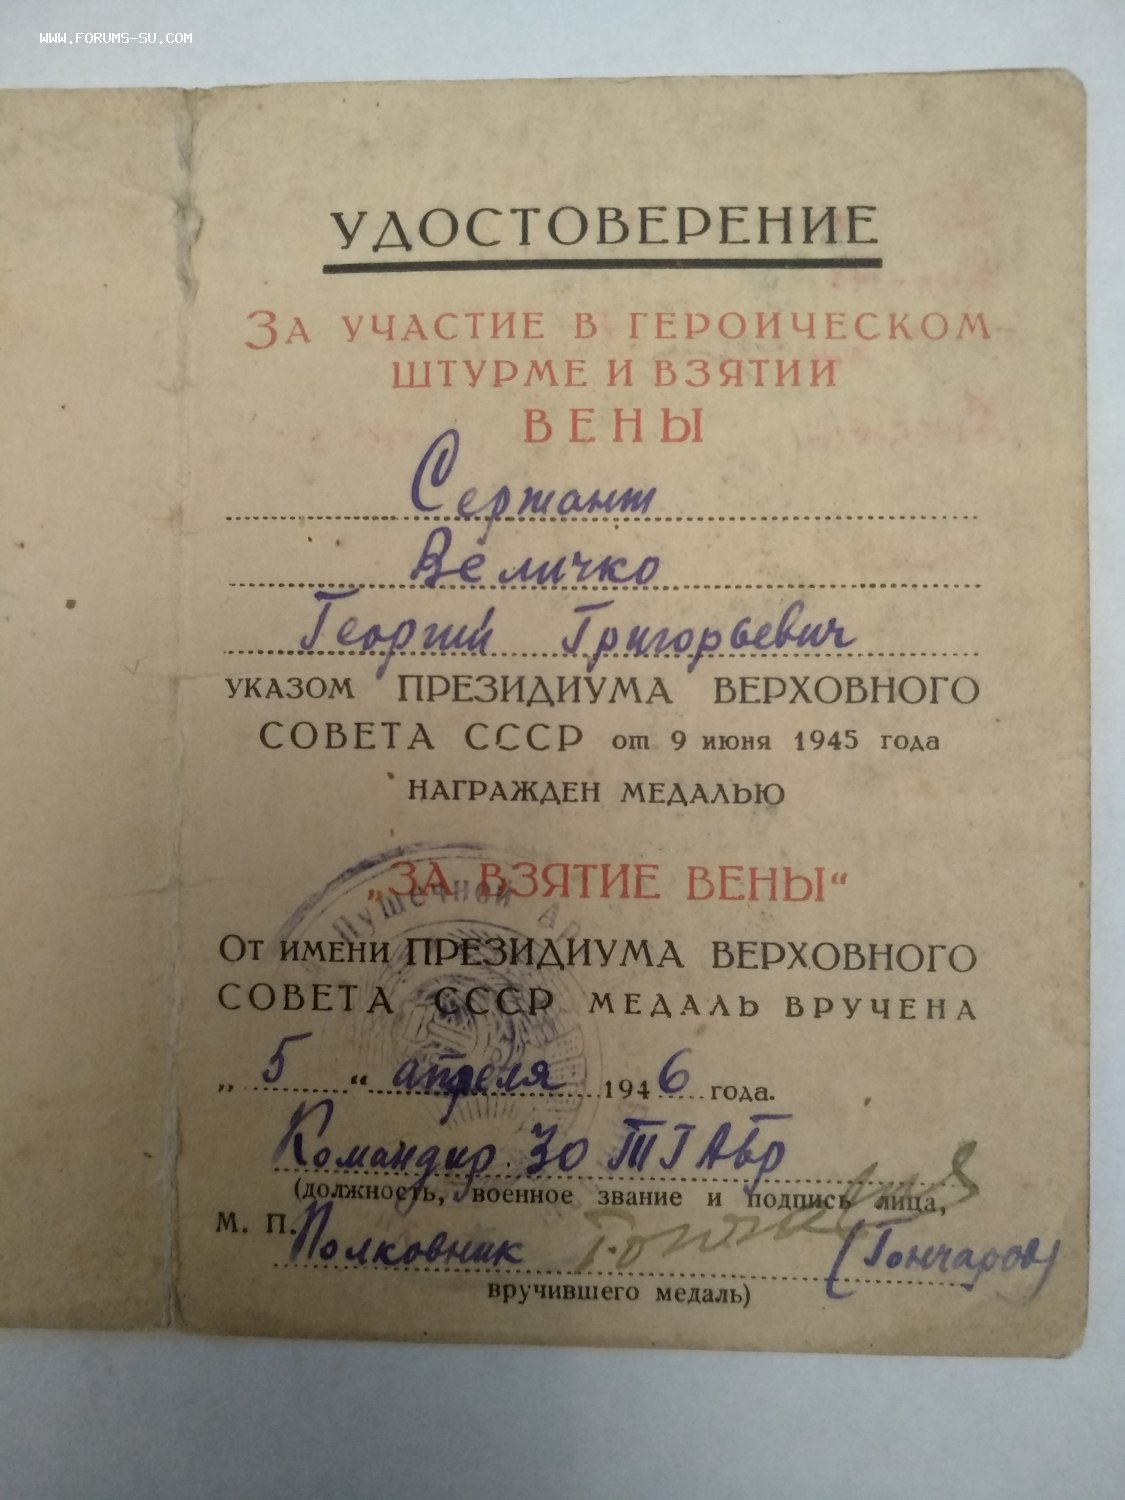 WWW.FORUMS-SU.COM
УДОСТОВЕРЕНИЕ
ЗА УЧАСТИЕ В ГЕРОИЧЕСКОМ
ШТУРМЕ И ВЗЯТИИ
ВЕНЫ
Сержант
Величко
Георгий Григорьевич
УКАЗОМ ПРЕЗИДИУМА ВЕРХОВНОГО
СОВЕТА СССР от 9 июня 1945 года
НАГРАЖДЕН МЕДАЛЬЮ
„ЗА ВЗЯТИЕ ВЕНЫ“
Пушечной
ОТ ИМЕНИ ПРЕЗИДИУМА ВЕРХОВНОГО
СОВЕТА СССР МЕДАЛЬ ВРУЧЕНА
„ 5 “ апреля 1946 года.
Командир 30 ТГАбр
(должность, военное звание и подпись лица,
М. П. Полковник (Гончаров)
вручившего медаль)